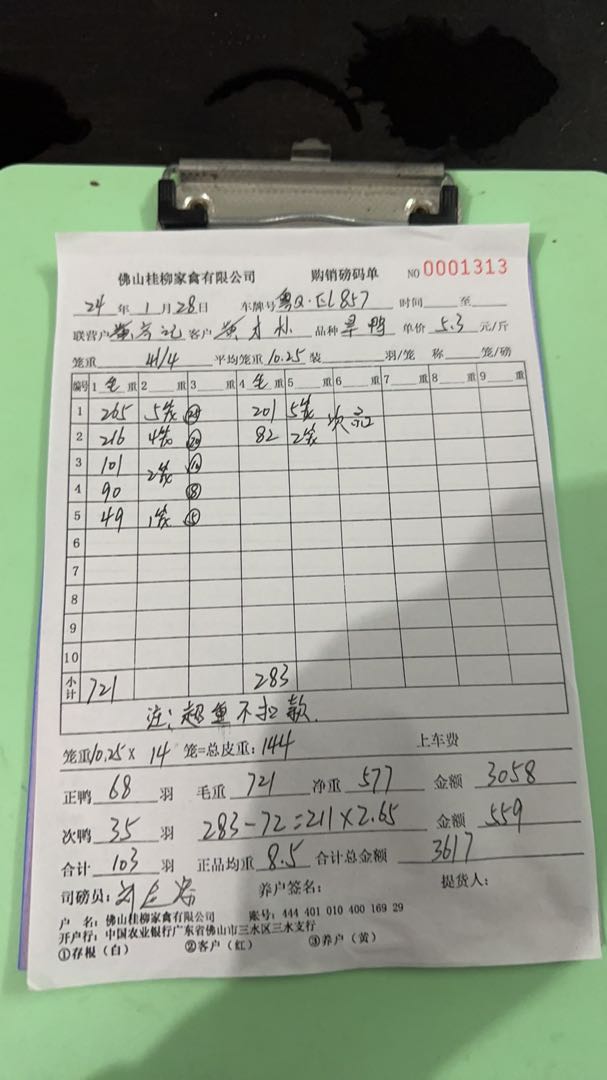 佛山桂柳家禽有限公司 购销磅码单 NO 0001313
24 年 1 月 28 日 车牌号 粤Q·EL857 时间 至
联营户 客户 黄 品种 旱鸭 单价 5.3 元/斤
笼重 41/4 平均笼重 10.25 装 羽/笼 称 笼/磅
编号 1 毛 重 2 重 3 重 4 毛 重 5 重 6 重 7 重 8 重 9 重
1 265 5笼 201 5笼
2 216 4笼 20 82 2笼 次
3 101 2笼
4 90 8
5 49 1笼
6
7
8
9
10
小计 721 283
注:超重不扣款.
笼重10.25 × 14 笼=总皮重:144 上车费
正鸭 68 羽 毛重 721 净重 577 金额 3058
次鸭 35 羽 283-72=211×2.65 金额 559
合计 103 羽 正品均重 8.5 合计总金额 3617
司磅员: 养户签名: 提货人:
户 名:佛山桂柳家禽有限公司 账号:444 401 010 400 169 29
开户行:中国农业银行广东省佛山市三水区三水支行
①存根(白) ②客户(红) ③养户(黄)